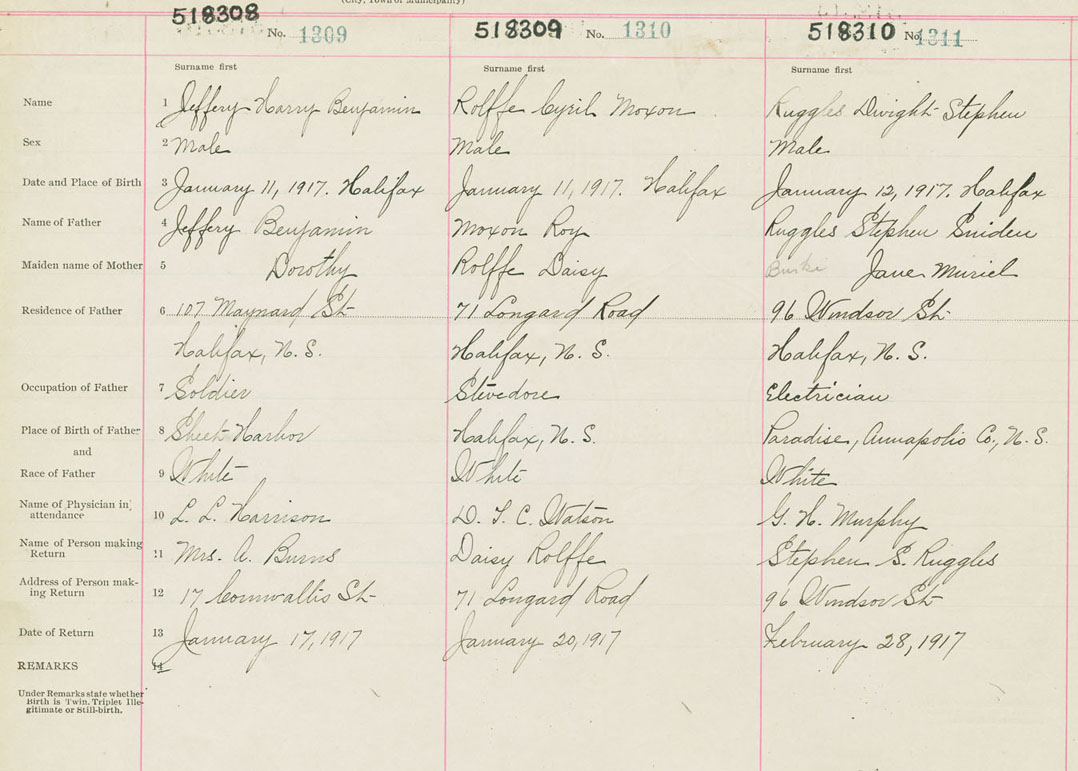 (City, Town or Municipality)
518308 No. 1309 518309 No. 1310 518310 No. 1311
Surname first Surname first Surname first
Name 1 Jeffery Harry Benjamin Rolffe Cyril Moxon Ruggles Dwight Stephen
Sex 2 Male Male Male
Date and Place of Birth 3 January 11, 1917. Halifax January 11, 1917. Halifax January 12, 1917. Halifax
Name of Father 4 Jeffery Benjamin Moxon Roy Ruggles Stephen Sniden
Maiden name of Mother 5 Dorothy Rolffe Daisy Jane Muriel
Residence of Father 6 107 Maynard St. 71 Longard Road 96 Windsor St.
Halifax, N. S. Halifax, N. S. Halifax, N. S.
Occupation of Father 7 Soldier Stevedore Electrician
Place of Birth of Father 8 Sheet Harbor Halifax, N. S. Paradise, Annapolis Co., N. S.
and
Race of Father 9 White White White
Name of Physician in attendance 10 L. L. Harrison D. T. C. Watson G. H. Murphy
Name of Person making Return 11 Mrs. A. Burns Daisy Rolffe Stephen S. Ruggles
Address of Person making Return 12 17 Cornwallis St. 71 Longard Road 96 Windsor St.
Date of Return 13 January 17, 1917 January 20, 1917 February 28, 1917
REMARKS 14
Under Remarks state whether
Birth is Twin, Triplet Ille-
gitimate or Still-birth.